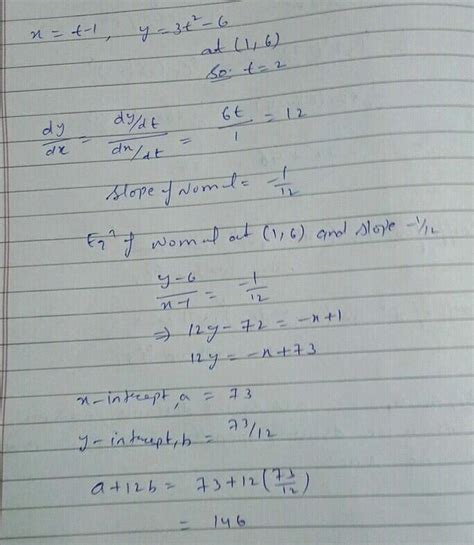 x = t-1, y = 3t² - 6
at (1, 6)
So: t = 2
dy/dx = (dy/dt)/(dx/dt) = 6t/1 = 12
Slope of Normal = -1/12
Eqⁿ of Normal at (1, 6) and slope -1/12
(y-6)/(x-1) = -1/12
⇒ 12y - 72 = -x + 1
12y = -x + 73
x-intercept, a = 73
y-intercept, b = 73/12
a + 12b = 73 + 12(73/12)
= 146